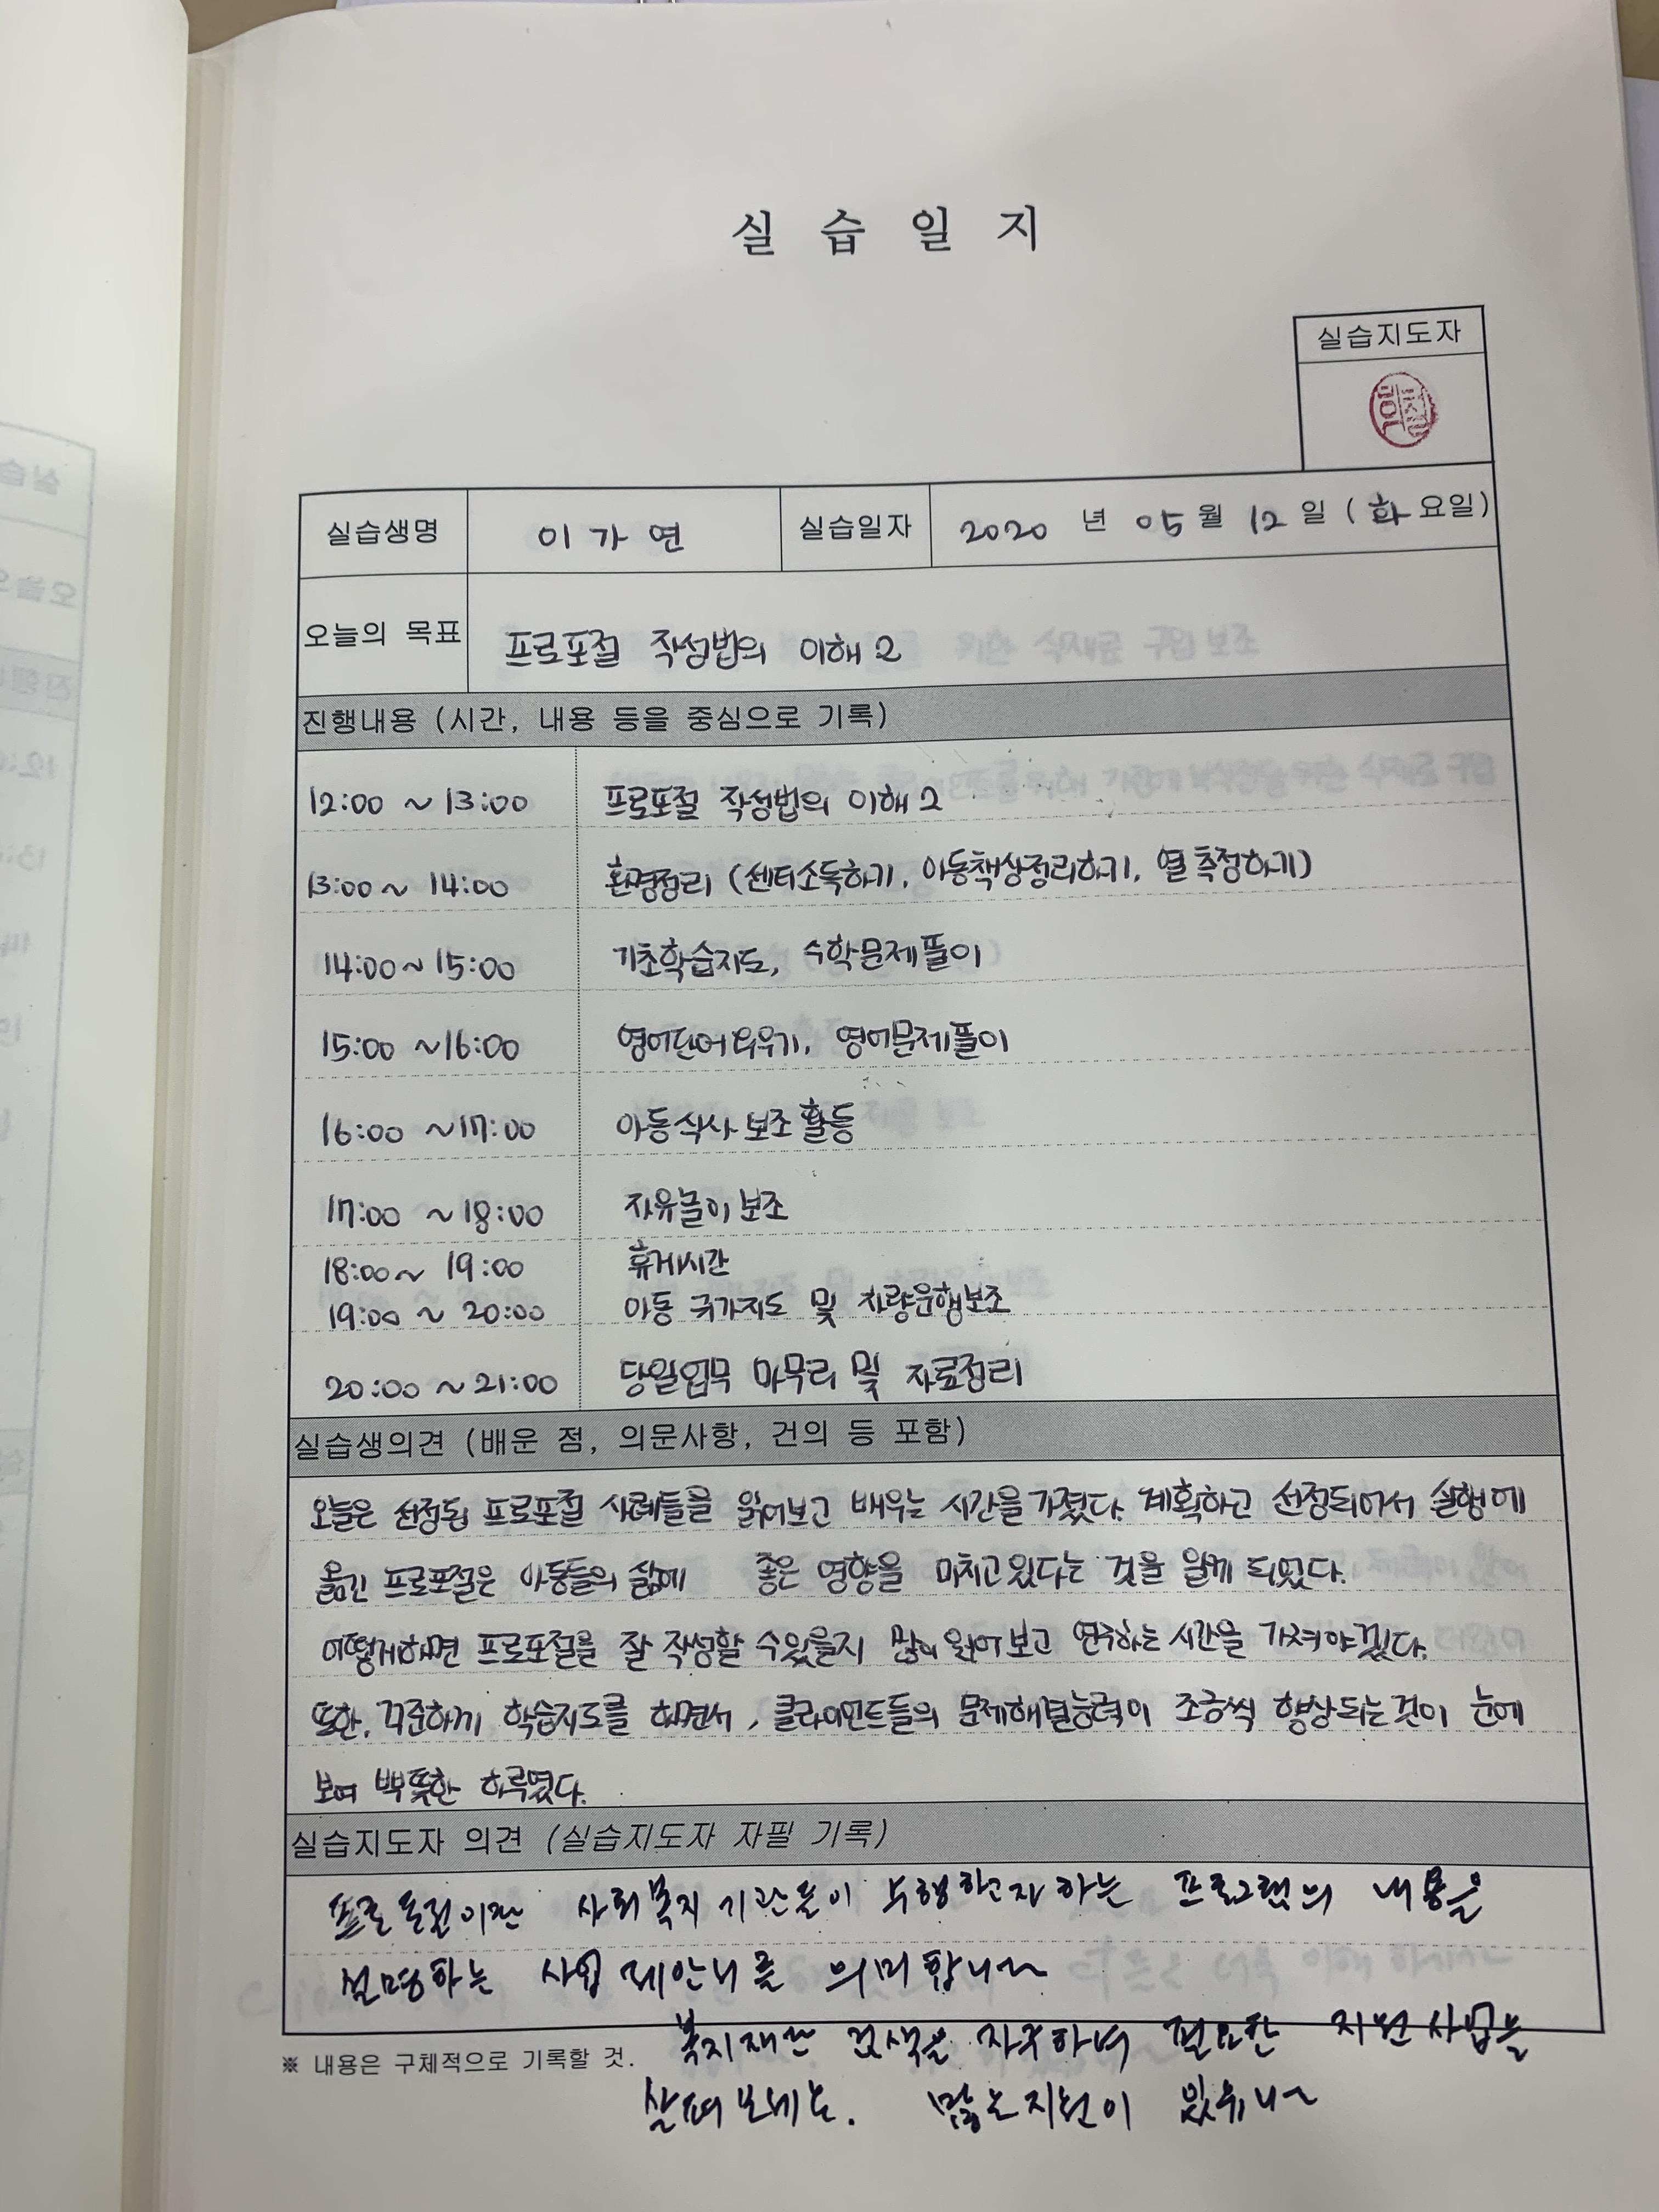 실 습 일 지
실습지도자
실습생명 이가연 실습일자 2020 년 05 월 12 일 (화요일)
오늘의 목표 프로포절 작성법의 이해 2
진행내용 (시간, 내용 등을 중심으로 기록)
12:00 ~ 13:00 프로포절 작성법의 이해 2
13:00 ~ 14:00 환경정리 (센터소독하기, 아동책상정리하기, 열 측정하기)
14:00 ~ 15:00 기초학습지도, 수학문제풀이
15:00 ~ 16:00 영어단어 외우기, 영어문제풀이
16:00 ~ 17:00 아동식사 보조활동
17:00 ~ 18:00 자유놀이 보조
18:00 ~ 19:00 휴게시간
19:00 ~ 20:00 아동 귀가지도 및 차량운행보조
20:00 ~ 21:00 당일업무 마무리 및 자료정리
실습생의견 (배운 점, 의문사항, 건의 등 포함)
오늘은 선정된 프로포절 사례들을 읽어보고 배우는 시간을 가졌다. 계획하고 선정되어서 실행에
옮긴 프로포절은 아동들의 삶에 좋은 영향을 미치고 있다는 것을 알게 되었다.
어떻게하면 프로포절를 잘 작성할 수있을지 많이 읽어보고 연구하는 시간을 가져야겠다.
또한, 꾸준하게 학습지도를 하면서, 클라이언트들의 문제해결능력이 조금씩 향상되는것이 눈에
보여 뿌듯한 하루였다.
실습지도자 의견 (실습지도자 자필 기록)
프로포절이란 사회복지 기관들이 수행하고자 하는 프로그램의 내용을
설명하는 사업 제안서를 의미합니다
복지재단 검색을 자주하여 필요한 지원사업을
※ 내용은 구체적으로 기록할 것.
살펴보세요. 많은지원이 있습니다